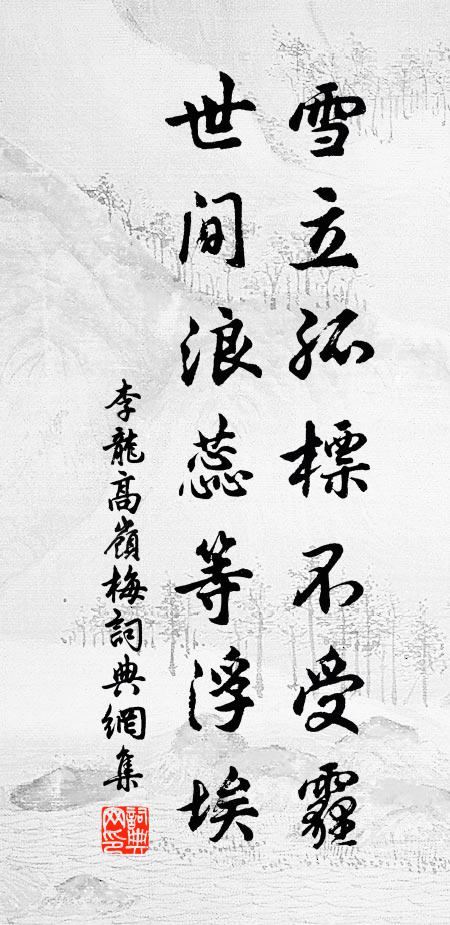 雪立孤標不受霾
世間浪蕊等浮埃
李龍高嶺梅詞典網集
詞典網印